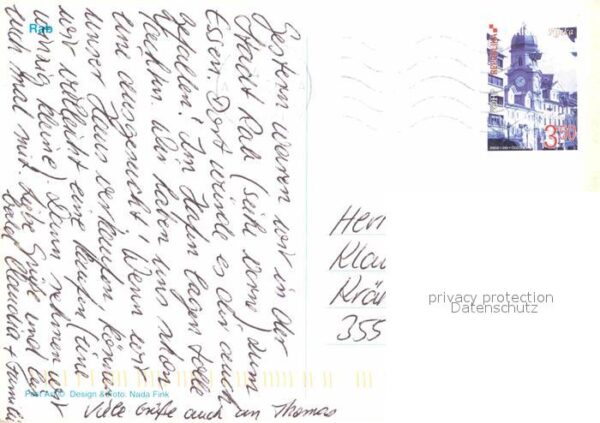 Rab
Gestern waren wir in der
Stadt Rab (siehe vorne) zum
Essen. Dort würde es dir auch
gefallen! Im Hafen lagen tolle
Yachten. Wir haben uns schon
eine ausgesucht! Wenn wir
unser Haus verkaufen, können
wir vielleicht eine kaufen (eine
winzig kleine). Dann nehmen wir
euch mal mit. Liebe Grüße und bis
bald Claudia + Familie
Viele Grüße auch an Thomas
Design & Foto: Nada Fink
3.50
Herr
Klau
Krä
355
privacy protection
Datenschutz